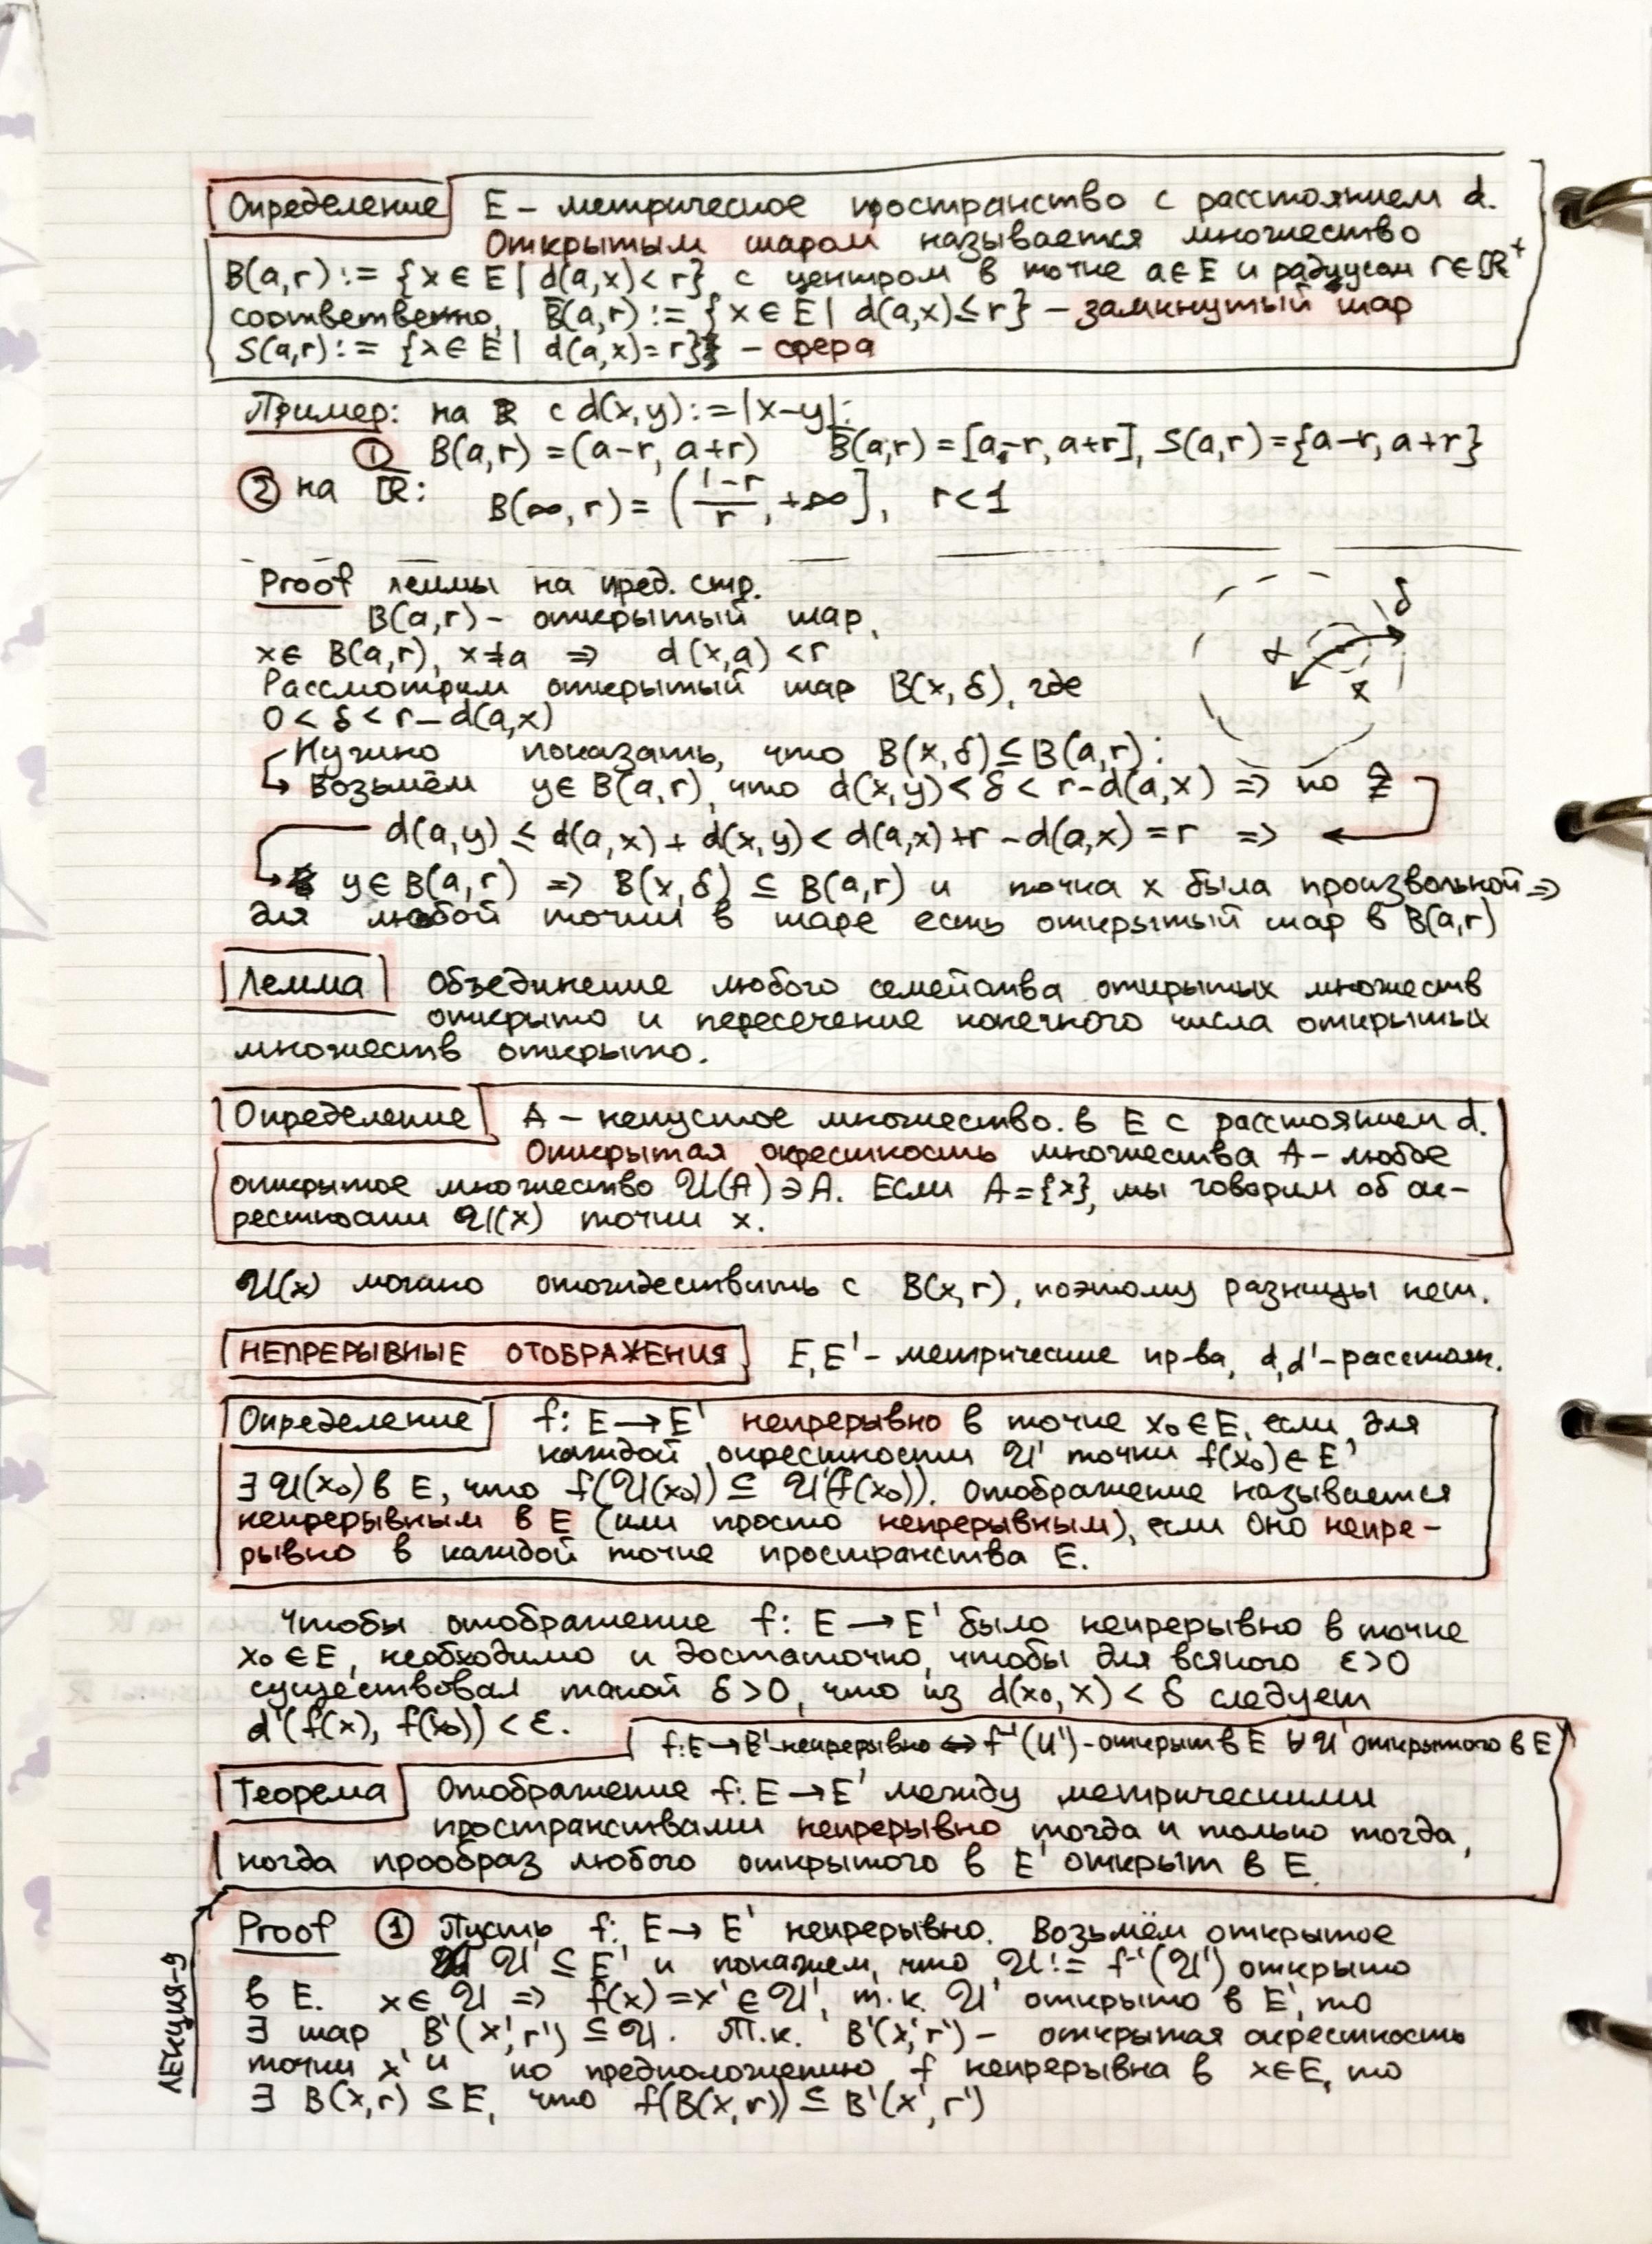 Определение E – метрическое пространство с расстоянием d.
Открытым шаром называется множество
B(a,r) := {x ∈ E | d(a,x) < r}, с центром в точке a ∈ E и радиусом r ∈ ℝ⁺
соответственно, B̄(a,r) := {x ∈ E | d(a,x) ≤ r} – замкнутый шар
S(a,r) := {x ∈ E | d(a,x) = r} – сфера
Пример: на ℝ с d(x,y) := |x–y|:
① B(a,r) = (a–r, a+r) B̄(a,r) = [a–r, a+r], S(a,r) = {a–r, a+r}
② на ℝ̄: B(∞,r) = (1–r/r, +∞], r<1
Proof леммы на пред. стр.
B(a,r) – открытый шар,
x ∈ B(a,r), x≠a ⇒ d(x,a) < r
Рассмотрим открытый шар B(x,δ), где
0 < δ < r – d(a,x)
δ
x
Нужно показать, что B(x,δ) ⊆ B(a,r):
Возьмём y ∈ B(a,r), что d(x,y) < δ < r – d(a,x) ⇒ по
d(a,y) ≤ d(a,x) + d(x,y) < d(a,x) + r – d(a,x) = r ⇒
y ∈ B(a,r) ⇒ B(x,δ) ⊆ B(a,r) и точка x была произвольной ⇒
для любой точки в шаре есть открытый шар в B(a,r)
Лемма Объединение любого семейства открытых множеств
открыто и пересечение конечного числа открытых
множеств открыто.
Определение A – непустое множество. в E с расстоянием d.
Открытая окрестность множества A – любое
открытое множество U(A) ∋ A. Если A = {x}, мы говорим об ок-
рестности U(x) точки x.
U(x) можно отождествить с B(x,r), поэтому разницы нет.
НЕПРЕРЫВНЫЕ ОТОБРАЖЕНИЯ E,E' – метрические пр-ва, d,d' – расстоян.
Определение f: E → E' непрерывно в точке x₀ ∈ E, если для
каждой окрестности U' точки f(x₀) ∈ E'
∃ U(x₀) в E, что f(U(x₀)) ⊆ U'(f(x₀)). Отображение называется
непрерывным в E (или просто непрерывным), если оно непре-
рывно в каждой точке пространства E.
Чтобы отображение f: E → E' было непрерывно в точке
x₀ ∈ E, необходимо и достаточно, чтобы для всякого ε>0
существовал такой δ>0, что из d(x₀,x) < δ следует
d'(f(x), f(x₀)) < ε.
f:E→E'-непрерывно ⇔ f⁻¹(U')-открыт в E ∀U' открытого в E'
Теорема Отображение f: E → E' между метрическими
пространствами непрерывно тогда и только тогда,
когда прообраз любого открытого в E' открыт в E.
ЛЕКЦИЯ-9
Proof ① Пусть f: E → E' непрерывно. Возьмём открытое
U' ⊆ E' и покажем, что U := f⁻¹(U') открыто
в E. x ∈ U ⇒ f(x) = x' ∈ U', т.к. U' открыто в E', то
∃ шар B'(x',r') ⊆ U. Т.к. B'(x',r') – открытая окрестность
точки x' и по предположению f непрерывна в x ∈ E, то
∃ B(x,r) ⊆ E, что f(B(x,r)) ⊆ B'(x',r')